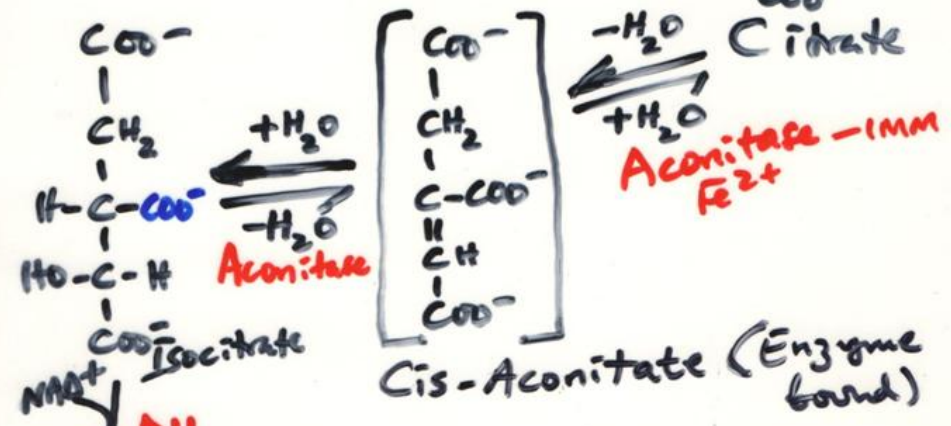 COO⁻
CH₂
H-C-COO⁻
HO-C-H
COO⁻
Isocitrate
NAD⁺
+H₂O
-H₂O
Aconitase
COO⁻
CH₂
C-COO⁻
CH
COO⁻
Cis-Aconitate (Enzyme
bound)
-H₂O
+H₂O
Citrate
Aconitase - IMM
Fe²⁺